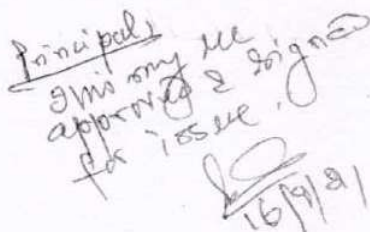 Principal,
This may be
approved & signed
for issue.
16/9/21